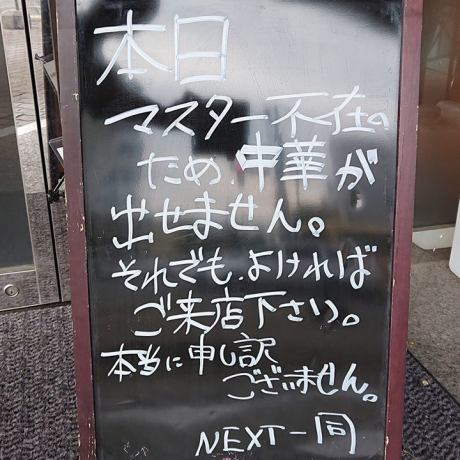 本日
マスター不在の
ため、中華が
出せません。
それでも、よければ
ご来店下さい。
本当に申し訳
ございません。
NEXT一同